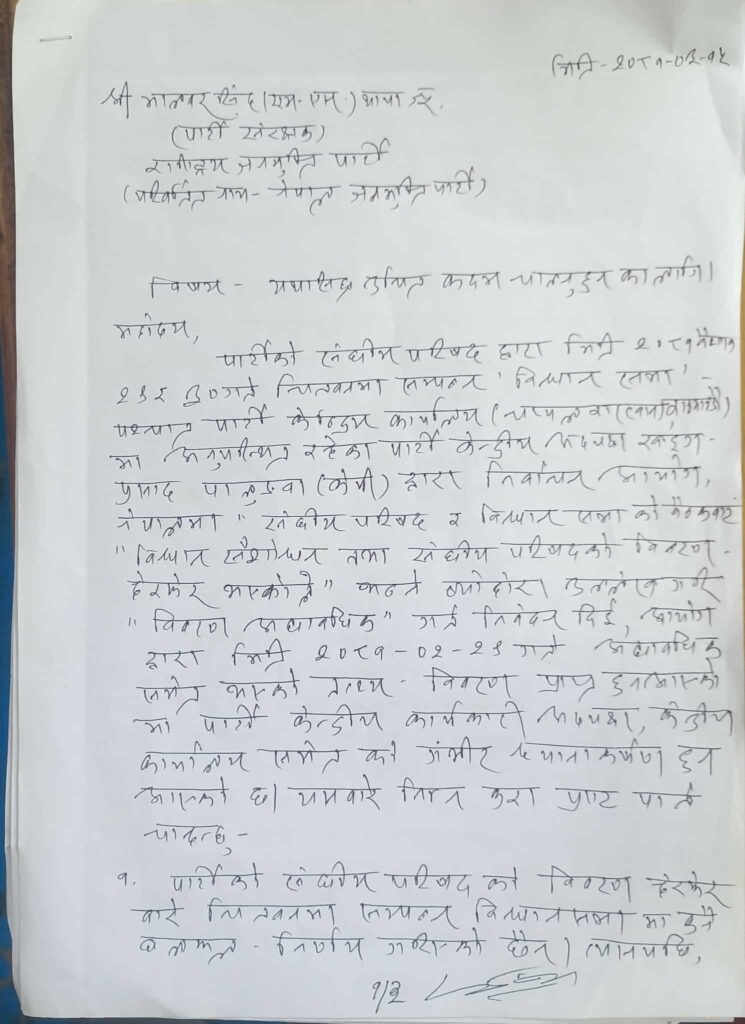 मिति - २०८१-०३-१५
श्री मालवर सिंह (एम. एम.) थापा ज्यू,
(पार्टी संरक्षक)
राष्ट्रिय जनमुक्ति पार्टी
(परिवर्तित नाम - नेपाल जनमुक्ति पार्टी)
विषय - यथाशिघ्र उचित कदम चाल्नुहुन का लागि।
महोदय,
पार्टीको संघीय परिषद द्वारा मिति २०८१ बैशाख
गते चितवनमा सम्पन्न 'विधान सभा' -
पश्चात् पार्टी केन्द्रिय कार्यालय
मा अनुपस्थित रहेका पार्टी केन्द्रीय अध्यक्ष खड्ग -
प्रसाद पालुङवा (केपी) द्वारा निर्वाचन आयोग,
नेपालमा " संघीय परिषद र विधान सभा को बैठकबाट
" विधान संशोधन तथा संघीय परिषदको विवरण -
हेरफेर भएकोले" भन्ने व्योहोरा उल्लेख गरी
" विवरण अद्यावधिक" गर्न निवेदन दिई, आयोग
द्वारा मिति २०८१-०२-२३ गते अद्यावधिक
समेत भएको तथ्य - विवरण प्राप्त हुनआएको
मा पार्टी केन्द्रीय कार्यकारी अध्यक्ष, केन्द्रीय
कार्यालय समेत को गंभीर ध्यानाकर्षण हुन
आएको छ। यसबारे निम्न कुरा प्रष्ट पार्न
चाहन्छु -
१. पार्टीको संघीय परिषद को विवरण हेरफेर
बारे चितवनमा सम्पन्न विधान सभा मा कुनै
छलफल - निर्णय गरीएको छैन। त्यसपछि,
१/३